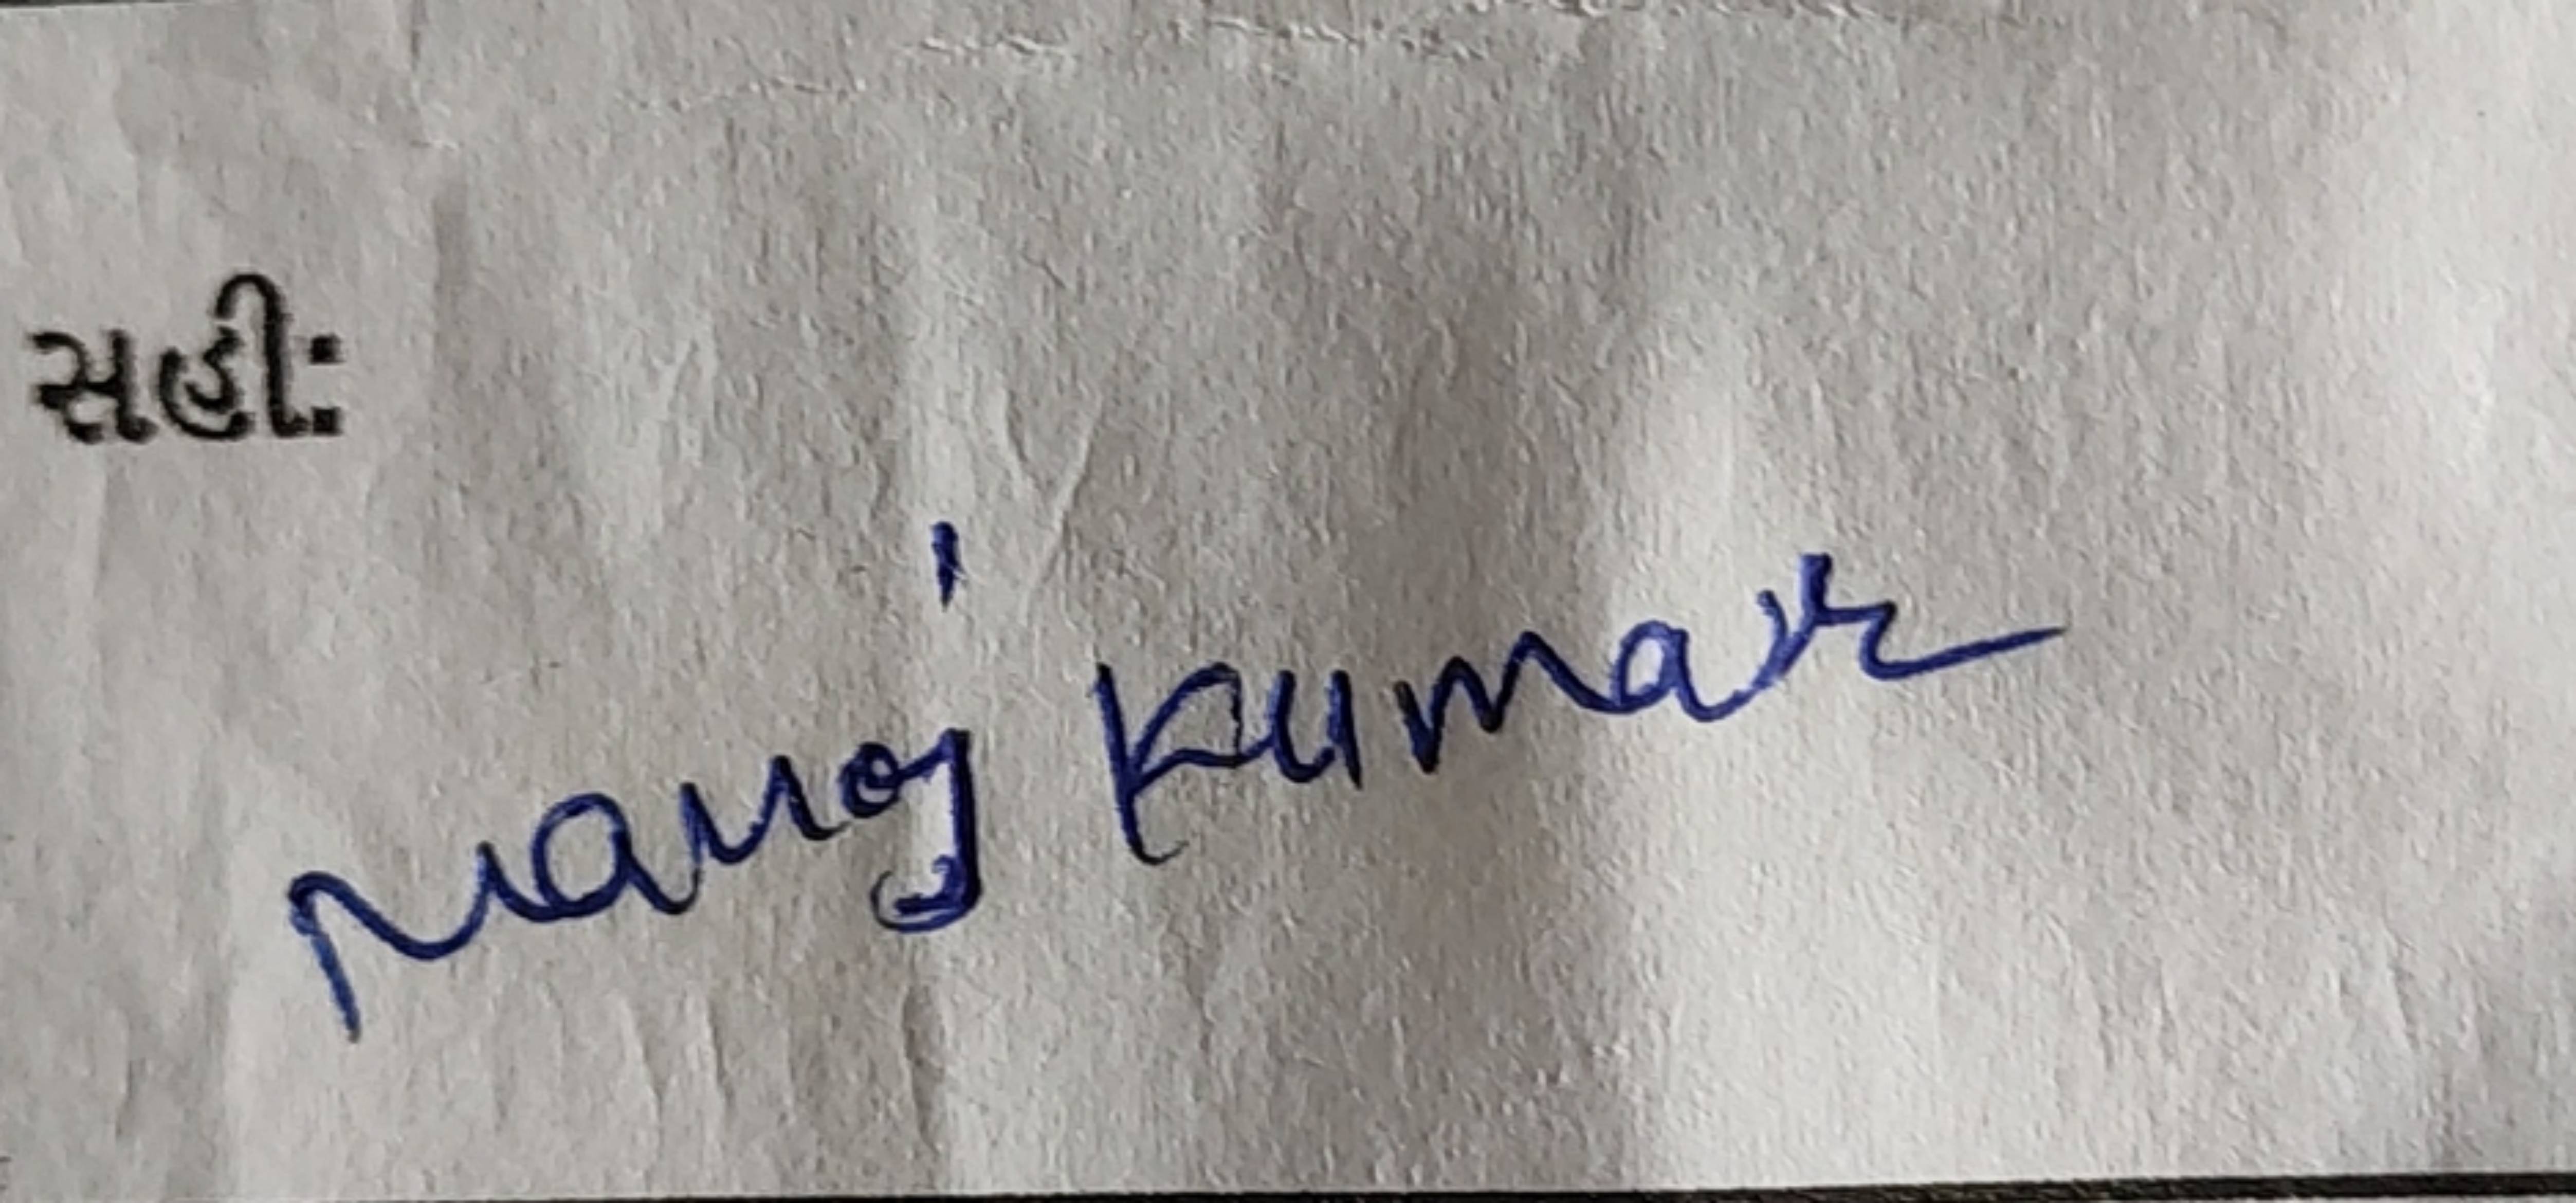 સહી:
Manoj Kumar